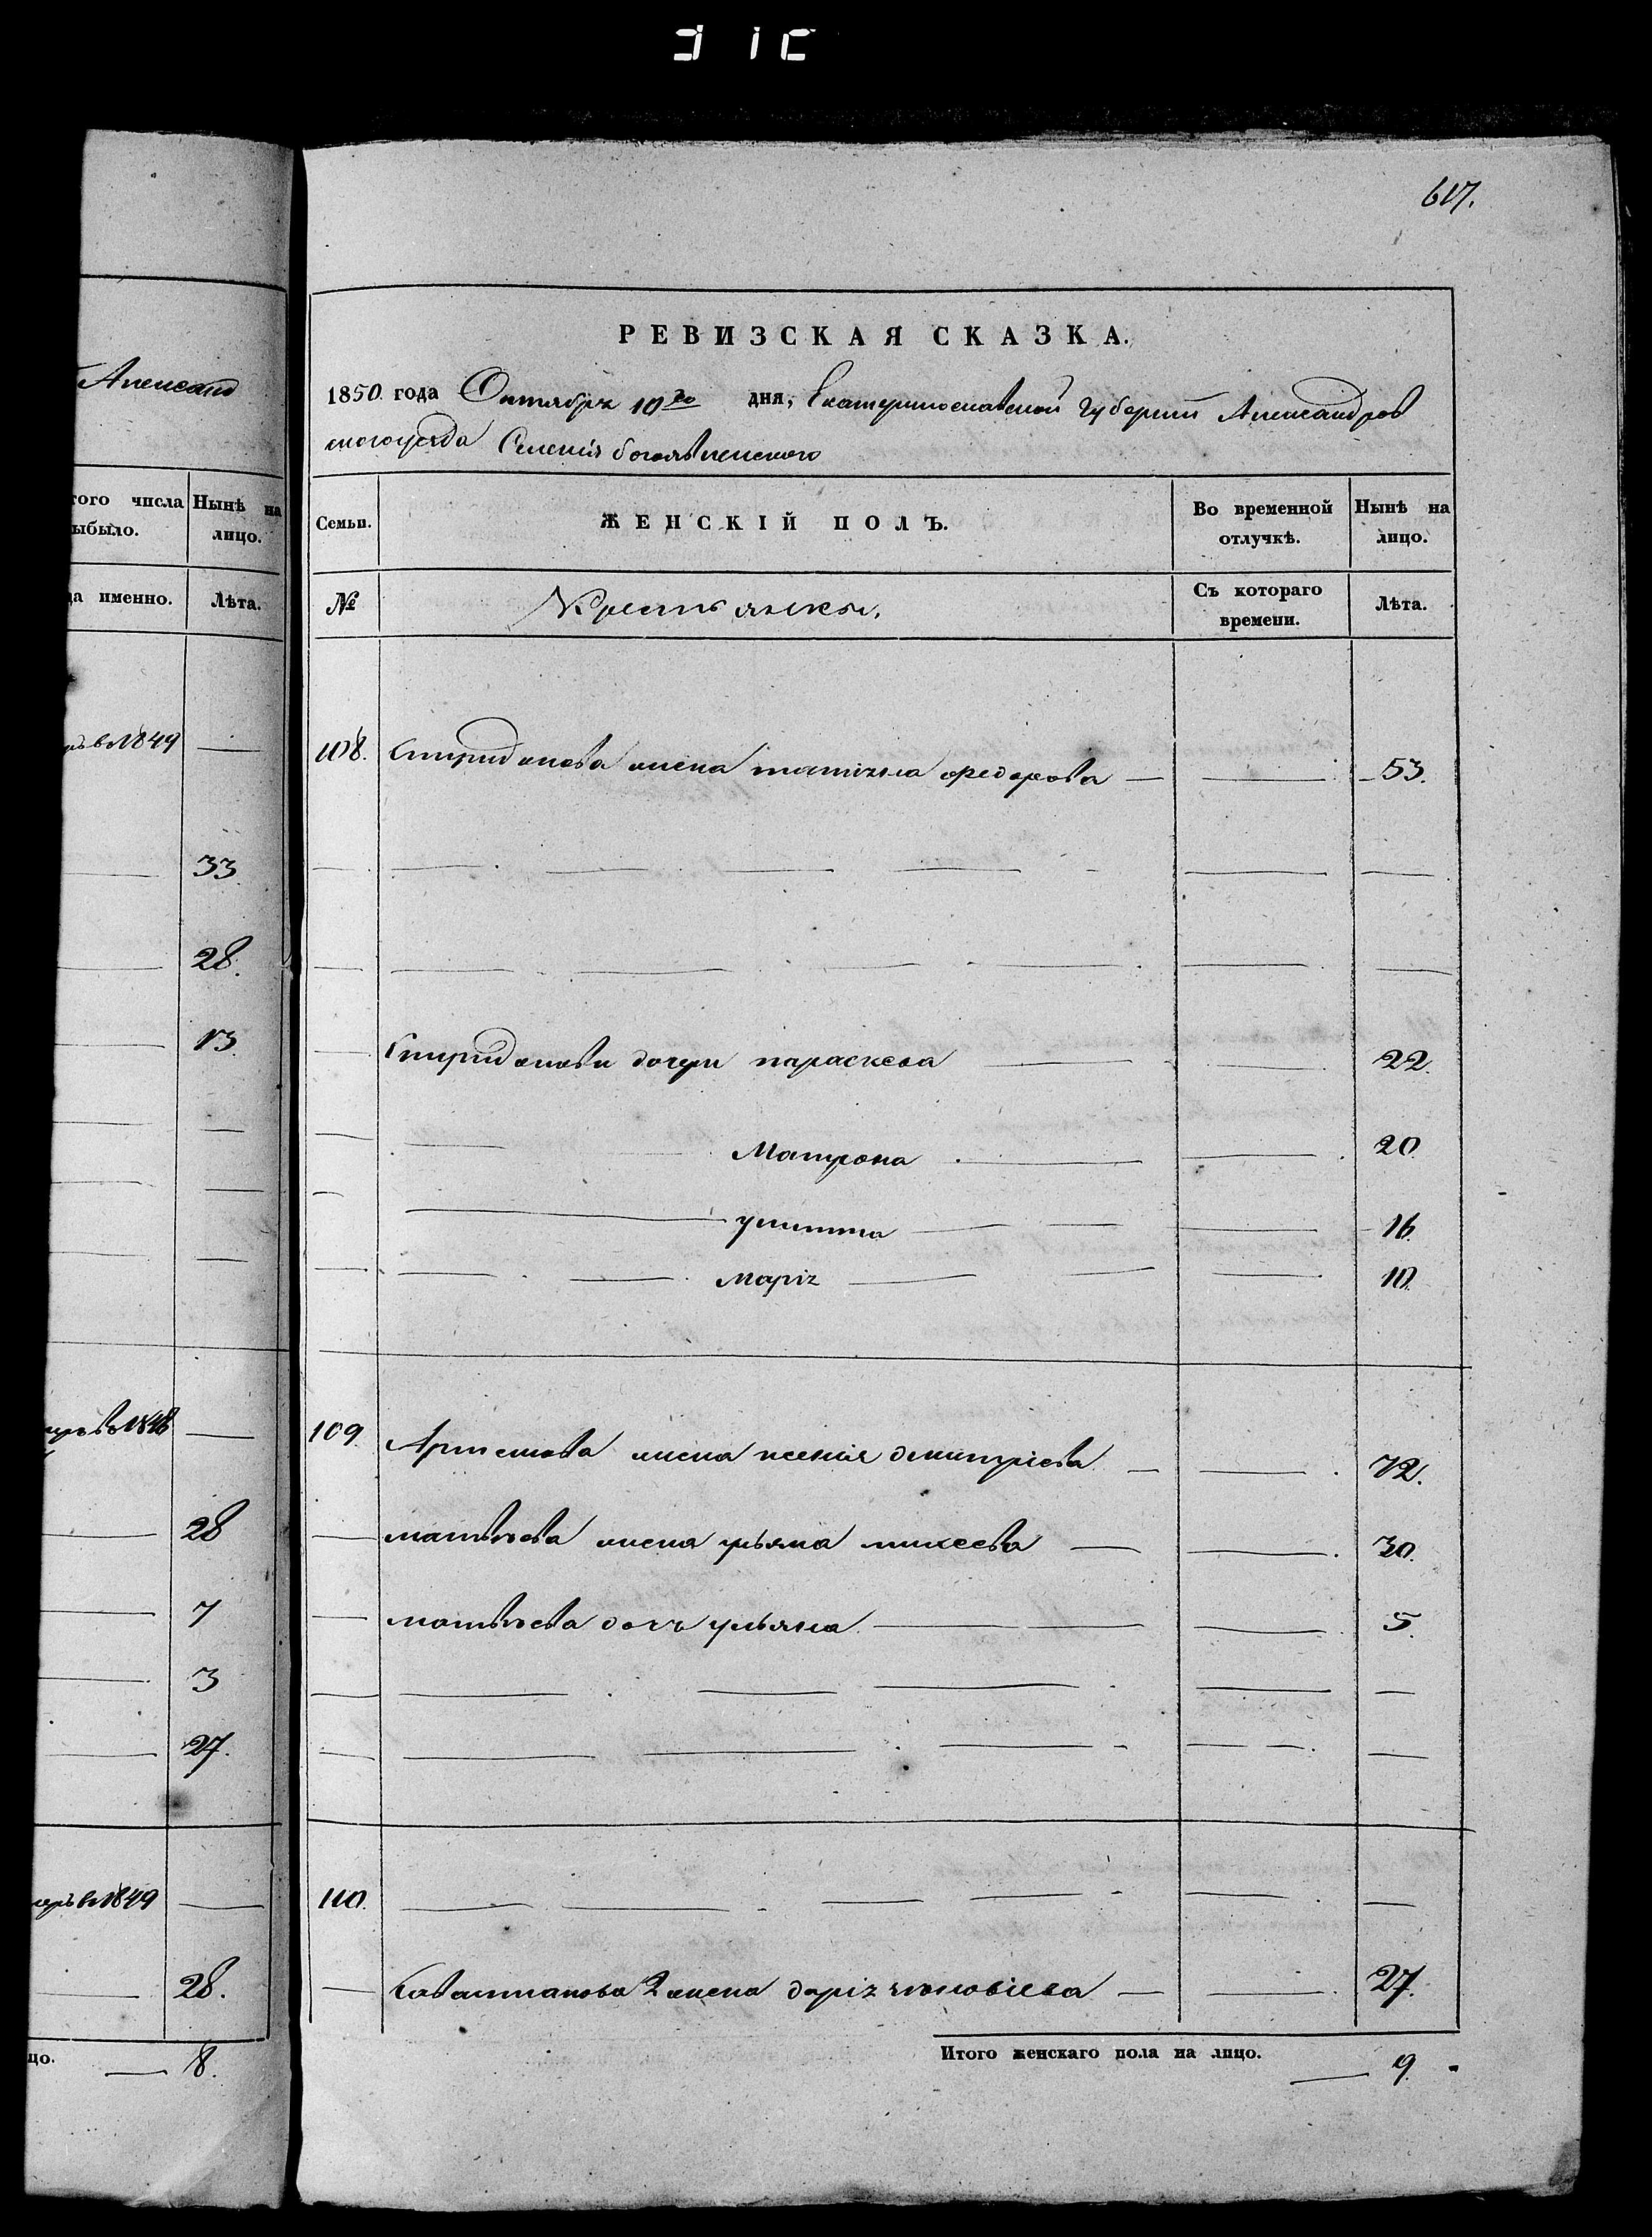 617.
Александ
того числа
ыбыло.
Нынѣ на
лицо.
да именно.
Лѣта.
въ 1849
33
28.
13.
28
7
3
27.
въ 1849
28.
цо. 8.
РЕВИЗСКАЯ СКАЗКА.
1850 года Октября 10го дня, Екатеринославской Губернии Александров
скаго уезда Селенія богоявленского
Семьи. ЖЕНСКІЙ ПОЛЪ. Во временной отлучкѣ. Нынѣ на лицо.
№ Крестьянки. Съ котораго времени. Лѣта.
108. Спиридонова жена татіяна федорова 53.
Спиридонови дочери параскева 22.
Матрона 20
улитта 16.
Марія 10.
109. Артемова жена ксенія дмитріева 72.
матвѣева жена ульяна микеева 30.
матвѣева дочь ульяна 5.
110.
2 жена дарія 27.
Итого женскаго пола на лицо. 9.